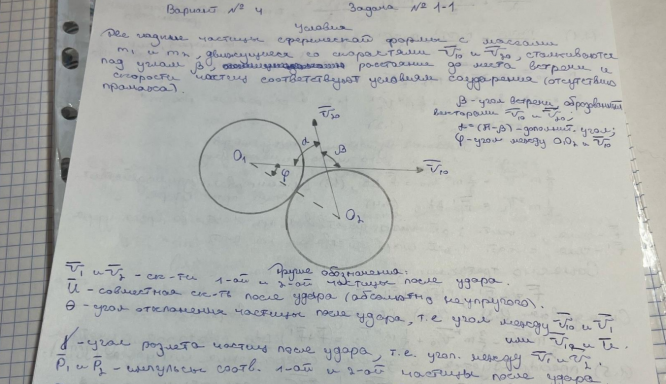 Вариант № 4 Задача № 1-1
Условия
Две гладкие частицы сферической формы с массами
m1 и m2, движущиеся со скоростями V̅10 и V̅20, сталкиваются
под углом β, расстояние до места встречи и
скорости частиц соответствуют условиям соударения (отсутствию
промаха).
V̅20
β - угол встречи, образованный
векторами V̅10 и V̅20,
α = (π-β) - дополнит. угол;
φ - угол между O1O2 и V̅10
α
β
O1
φ
V̅10
O2
Другие обозначения:
V̅1 и V̅2 - ск-ти 1-ой и 2-ой частицы после удара.
U̅ - совместная ск-ть после удара (абсолютно неупругого).
θ - угол отклонения частицы после удара, т.е угол между V̅10 и V̅1
или V̅10 и U̅.
γ - угол розлета частиц после удара, т.е. угол между V̅1 и V̅2.
P̅1 и P̅2 - импульсы соотв. 1-ой и 2-ой частицы после удара